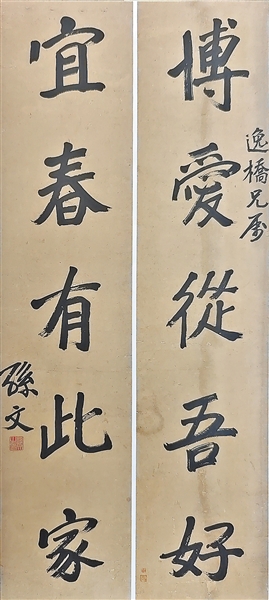 博愛從吾好
逸橋兄屬
宜春有此家
孫文